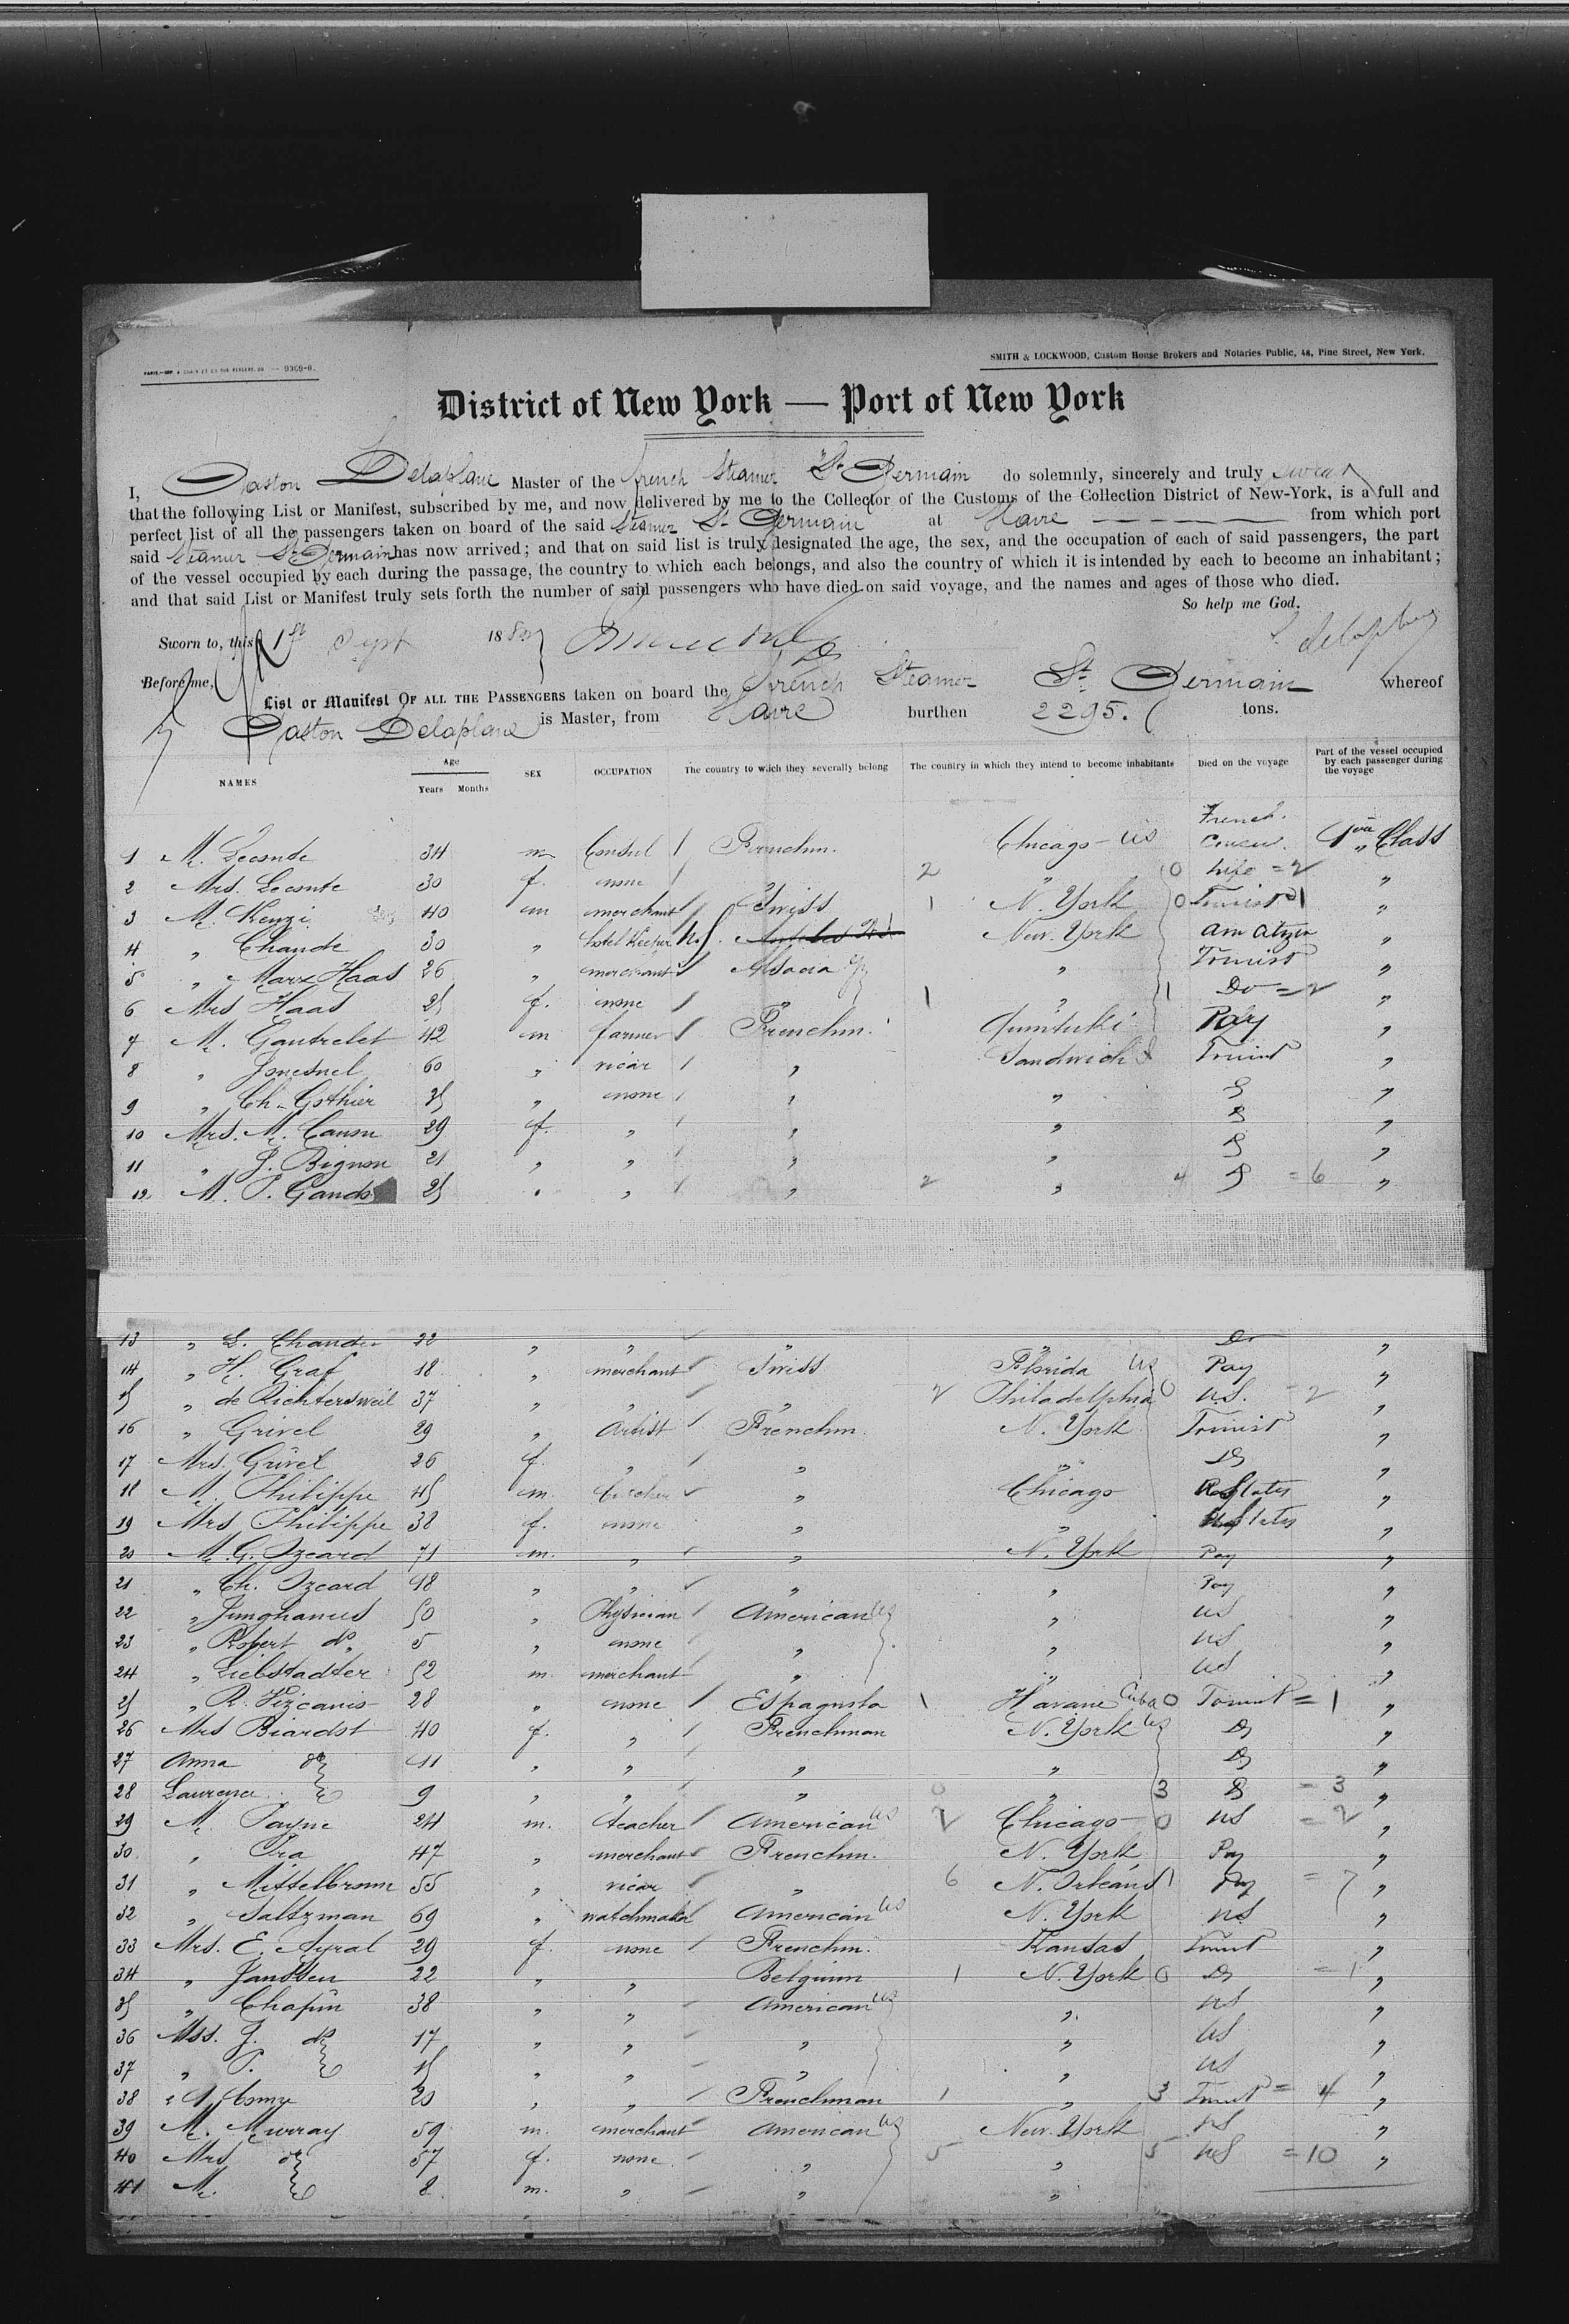 SMITH & LOCKWOOD, Custom House Brokers and Notaries Public, 48, Pine Street, New York.
9369-8.
District of New York — Port of New York
I, Gaston Delaplane Master of the French Steamer St Germain do solemnly, sincerely and truly swear
that the following List or Manifest, subscribed by me, and now delivered by me to the Collector of the Customs of the Collection District of New-York, is a full and
perfect list of all the passengers taken on board of the said Steamer St Germain at Havre from which port
said Steamer St Germain has now arrived; and that on said list is truly designated the age, the sex, and the occupation of each of said passengers, the part
of the vessel occupied by each during the passage, the country to which each belongs, and also the country of which it is intended by each to become an inhabitant;
and that said List or Manifest truly sets forth the number of said passengers who have died on said voyage, and the names and ages of those who died.
So help me God.
Sworn to, this 1st Sept 188
Before me,
List or Manifest OF ALL THE PASSENGERS taken on board the French Steamer St. Germain whereof
Gaston Delaplane is Master, from Havre burthen 2295. tons.
NAMES Age Years Months SEX OCCUPATION The country to wich they severally belong The country in which they intend to become inhabitants Died on the voyage Part of the vessel occupied by each passenger during the voyage
1 M. Leconte 34 m Consul Frenchm. Chicago - US French. Class
2 Mrs. Leconte 30 f. none " 2 " 0 Wife = 2 "
3 M. Kenzi 40 m merchant Swiss 1 N. York 0 Tourist 1 "
4 " Chande 30 " hotel Keeper U.S. New. York am citizen "
5 " Marx Haas 26 " merchant Alsacia " Tourist "
6 Mrs Haas 25 f. none " 1 " 1 Do = 2 "
7 M. Gautrelet 42 m farmer Frenchm. Quintuki Pay "
8 " 60 " vicar " Sandwich I Tourist "
9 " Ch. Gothier 25 " none " " "
10 Mrs. M. 29 f. " " " "
11 " J. Bignon 21 " " " " "
12 M. P. 25 " " " 2 " 4 = 6 "
13 " L. 22 " " " " Do "
14 " H. Graf 18 " merchant Swiss Florida US Pay "
15 " de Richtersweil 37 " " " 2 Philadelphia 0 U.S. = 2 "
16 " Grivel 29 " Artist Frenchm. N. York Tourist "
17 Mrs. Grivel 26 f. " " " "
18 M. Philippe 45 m. " Chicago "
19 Mrs Philippe 38 f. none " " "
20 M. G. Izcard 71 m. " " N. York Pay "
21 " Ch. Izcard 48 " " " " Pay "
22 " Junghanus 50 " Physician American US " US "
23 " Robert do 5 " none " " US "
24 " Liebstadter 52 m. merchant " " US "
25 " R. Vizcanis 28 " none Espagnola 1 Havane Cuba 0 Tourist = 1 "
26 Mrs Biardot 40 f. " Frenchman N. York US "
27 Anna do 11 " " " " "
28 Laurence 9 " " " 0 " 3 = 3 "
29 M. Payne 24 m. teacher American US 2 Chicago 0 US = 2 "
30 " Ira 47 " merchant Frenchm. N. York Pay "
31 " Mittelbronn 55 " vicar " 6 N. Orleans 1 Pay = 7 "
32 " Saltzman 69 " watchmaker American US N. York US "
33 Mrs. E. Ayral 29 f. none Frenchm. Kansas Tourist "
34 " Janssen 22 " " Belgium 1 N. York 0 = 1 "
35 " Chapin 38 " " American US " US "
36 Mss. J. do 17 " " " " US "
37 " P. 15 " " " " US "
38 " 20 " " Frenchman 1 " 3 Tourist = 4 "
39 M. Murray 59 m. merchant American US New. York US "
40 Mrs do 57 f. none " 5 " 5 US = 10 "
41 M. 8 m. " " "